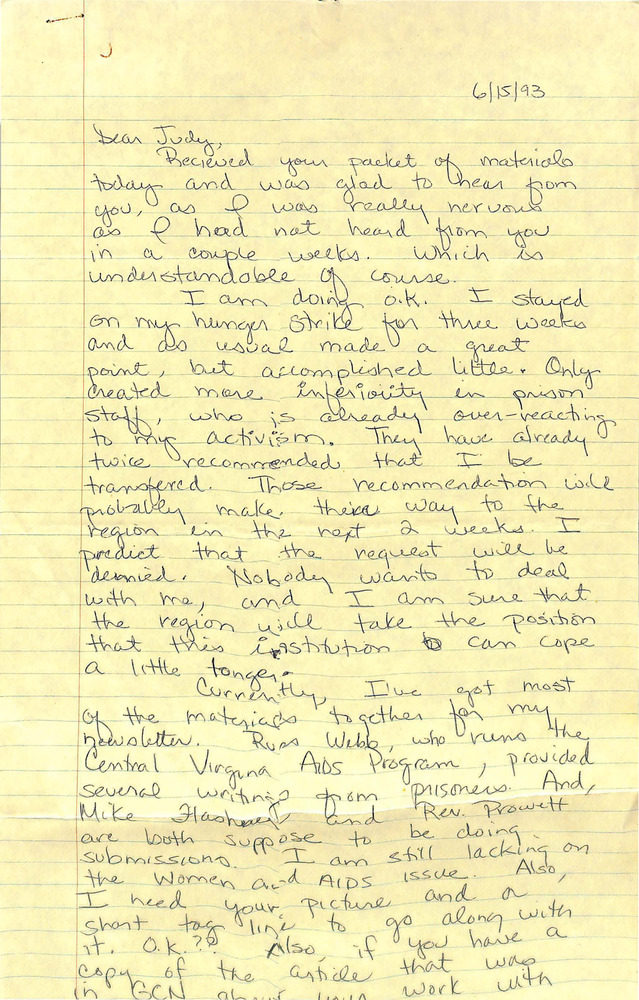 6/15/93
Dear Judy,
Recieved your packet of materials
today and was glad to hear from
you, as I was really nervous
as I head not heard from you
in a couple weeks. Which is
understandable of course.
I am doing o.k. I stayed
on my hunger strike for three weeks
and as usual made a great
point, but accomplished little. Only
created more inferiority in prison
staff, who is already over-reacting
to my activism. They have already
twice recommended that I be
transfered. Those recommendation will
probably make their way to the
region in the next 2 weeks. I
predict that the request will be
dennied. Nobody wants to deal
with me, and I am sure that
the region will take the position
that this institution can cope
a little longer.
Currently, I've got most
of the materials together for my
newsletter. Russ Webb, who runs the
Central Virgina AIDS Program, provided
several writings from prisoners. And,
Mike and Rev. Prowett
are both suppose to be doing
submissions. I am still lacking on
the Women and AIDS issue. Also,
I need your picture and a
short tag line to go along with
it. O.K.?? Also, if you have a
copy of the article that was
in GCN about your work with